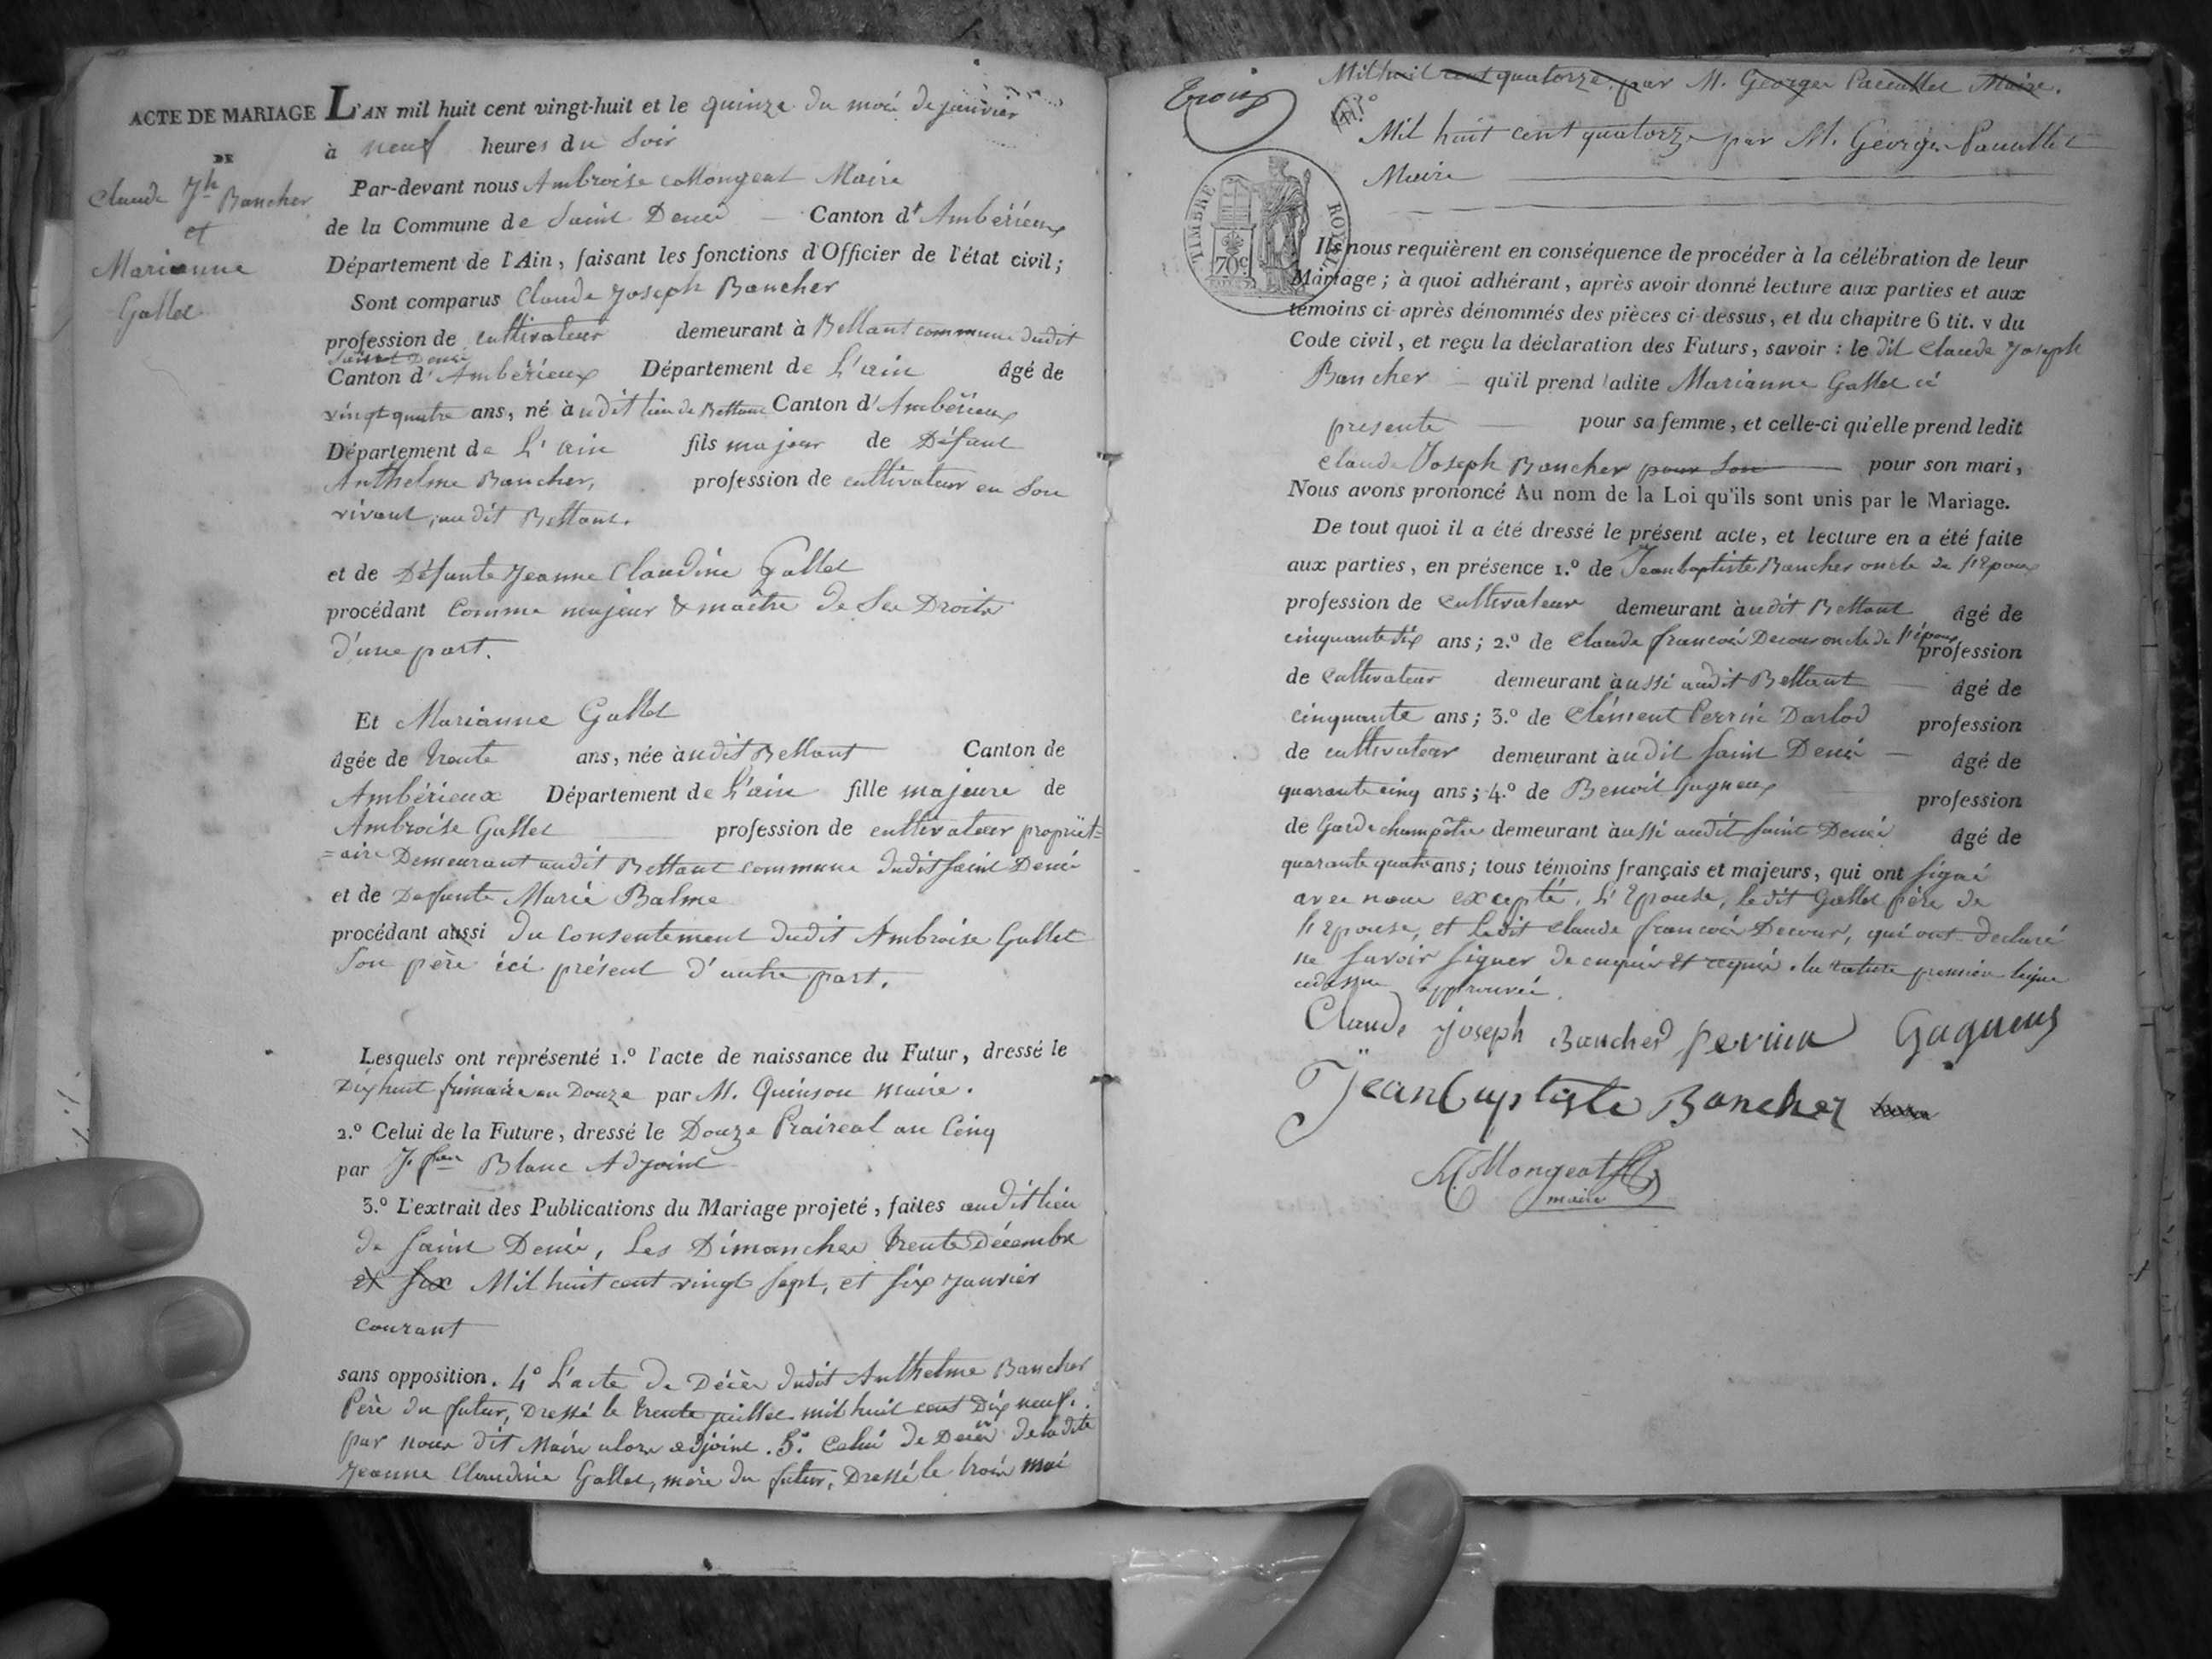 ACTE DE MARIAGE
DE
Claude Jh Bancher
et
Marianne
Gallet
L'AN mil huit cent vingt-huit et le quinze du mois de janvier
à neuf heures du Soir
Par-devant nous Ambroise Mongeat Maire
de la Commune de Saint Denis Canton d' Ambérieux
Département de l'Ain, faisant les fonctions d'Officier de l'état civil;
Sont comparus Claude Joseph Bancher
profession de cultivateur demeurant à Bettant commune dudit
Saint Denis
Canton d' Ambérieux Département de L'ain âgé de
vingt quatre ans, né à udit lieu de Bettant Canton d' Ambérieux
Département de L'ain fils majeur de Défunt
Anthelme Bancher, profession de cultivateur en Son
vivant, audit Bettant.
et de Défunte Jeanne Claudine Gallet
procédant Comme majeur & maître de Ses Droits
d'une part.
Et Marianne Gallet
âgée de trente ans, née à udit Bettant Canton de
Ambérieux Département de L'ain fille majeure de
Ambroise Gallet profession de cultivateur propriét=
=aire Demeurant audit Bettant commune dudit Saint Denis
et de Défunte Marie Balme
procédant aussi du consentement dudit Ambroise Gallet
Son père ici présent d'autre part.
Lesquels ont représenté 1.º l'acte de naissance du Futur, dressé le
Dix huit frimaire an Douze par M. Quinson maire.
2.º Celui de la Future, dressé le Douze Praireal an Cinq
par J. fran Blanc Adjoint
3.º L'extrait des Publications du Mariage projeté, faites audit lieu
de Saint Denis, Les Dimanches trente Décembre
et six Mil huit cent vingt Sept, et Six Janvier
courant
sans opposition. 4º L'acte de Décès dudit Anthelme Bancher
Père du futur, Dressé le trente juillet mil huit cent Dix neuf.
par nous dit Maire alors adjoint. 5º Celui de Décès de ladite
Jeanne Claudine Gallet, mère du futur, Dressé le trois mai
trois
Mil huit cent quatorze par M. Georges Pacallet Maire.
Mil huit cent quatorze par M. Georges Pacallet
Maire
TIMBRE ROYAL
70c
Ils nous requièrent en conséquence de procéder à la célébration de leur
Mariage; à quoi adhérant, après avoir donné lecture aux parties et aux
témoins ci-après dénommés des pièces ci-dessus, et du chapitre 6 tit. v du
Code civil, et reçu la déclaration des Futurs, savoir : le dit Claude Joseph
Bancher qu'il prend ladite Marianne Gallet ci
presente pour sa femme, et celle-ci qu'elle prend ledit
Claude Joseph Bancher pour Son pour son mari,
Nous avons prononcé Au nom de la Loi qu'ils sont unis par le Mariage.
De tout quoi il a été dressé le présent acte, et lecture en a été faite
aux parties, en présence 1.º de Jean baptiste Bancher oncle de l'Epoux
profession de cultivateur demeurant à udit Bettant âgé de
cinquante six ans; 2.º de Claude francois Decour oncle de l'époux profession
de Cultivateur demeurant à ussi audit Bettant âgé de
cinquante ans; 3.º de Clément Perrin Darlod profession
de cultivateur demeurant à udit Saint Denis âgé de
quarante cinq ans; 4.º de Benoit Gagneux profession
de Garde champêtre demeurant à ussi audit Saint Denis âgé de
quarante quatre ans; tous témoins français et majeurs, qui ont signé
avec nous excepté, L'Epouse, ledit Gallet père de
l'Epouse, et ledit Claude francois Decour, qui ont declaré
ne Savoir Signer de enquis et requis. la rature première ligne
cidessus approuvée.
Claude joseph Bancher perrin Gagneux
Jean baptiste Bancher
Mongeat
maire